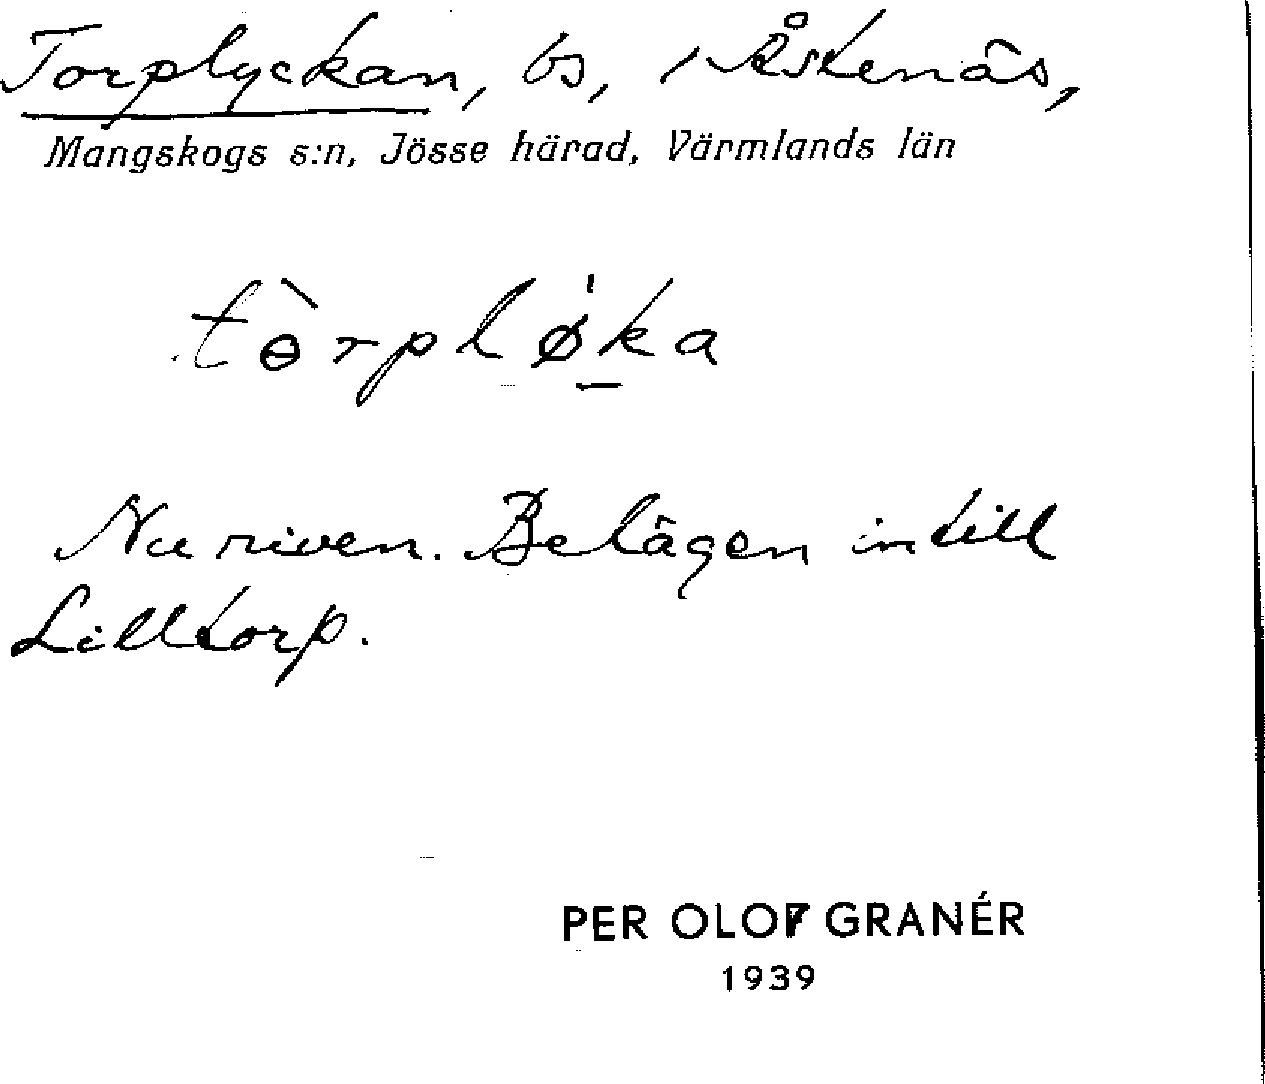 Torplyckan, bs, i Åskenäs,
Mangskogs s:n, Jösse härad, Värmlands län
tɵ̀rplø̍ka
Nu riven. Belägen intill
Lilltorp.
PER OLOF GRANÉR
1939